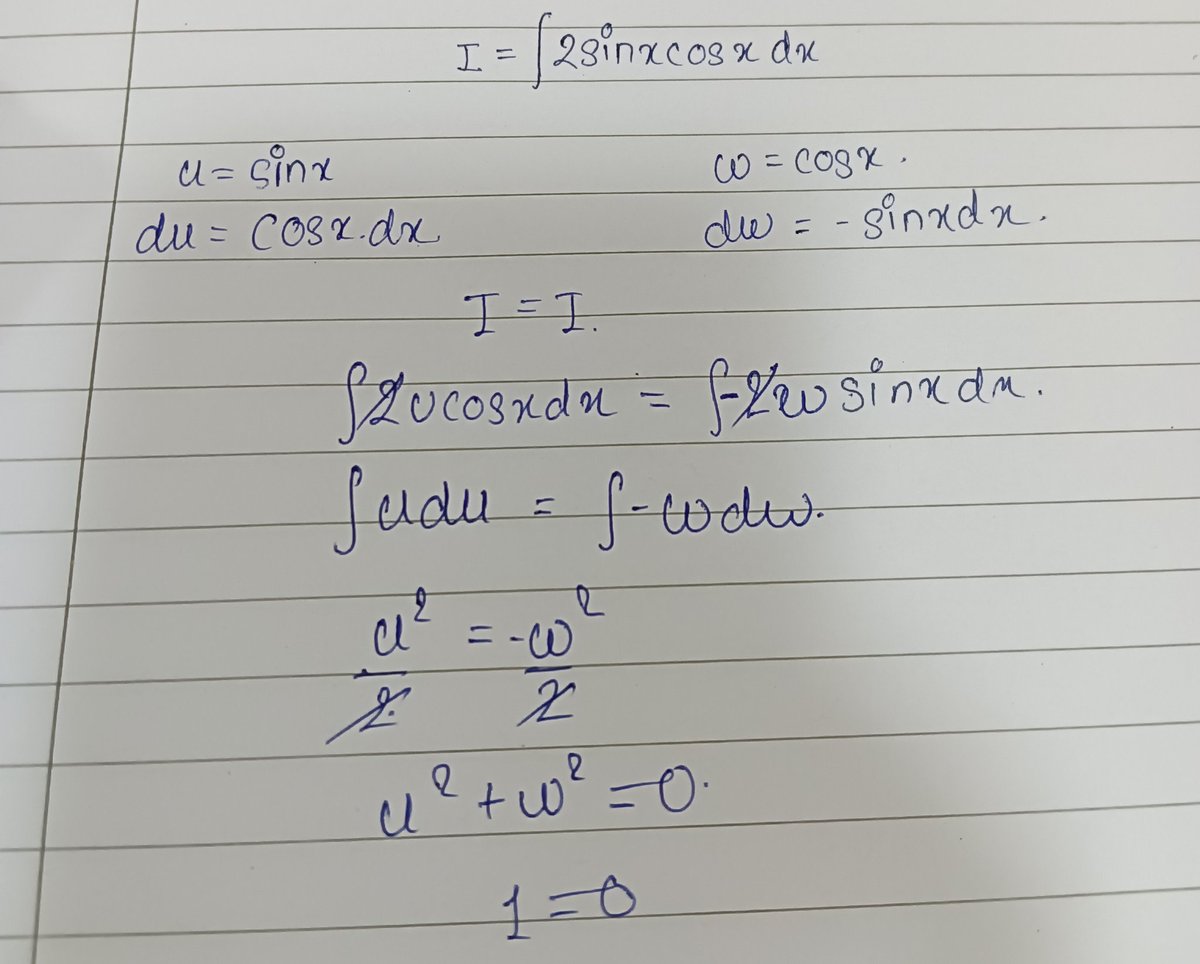 I = ∫2sinxcosx dx
u = sinx
w = cosx.
du = cosx.dx
dw = -sinxdx.
I = I.
∫2ucosxdx = ∫-2w sinxdx.
∫udu = ∫-wdw.
u²/2 = -w²/2
u² + w² = 0.
1 = 0